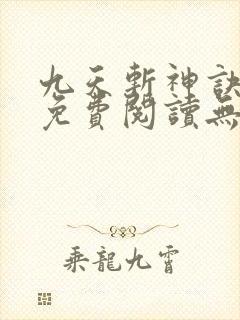 九天斬神訣
免費閱讀無
乘龍九霄